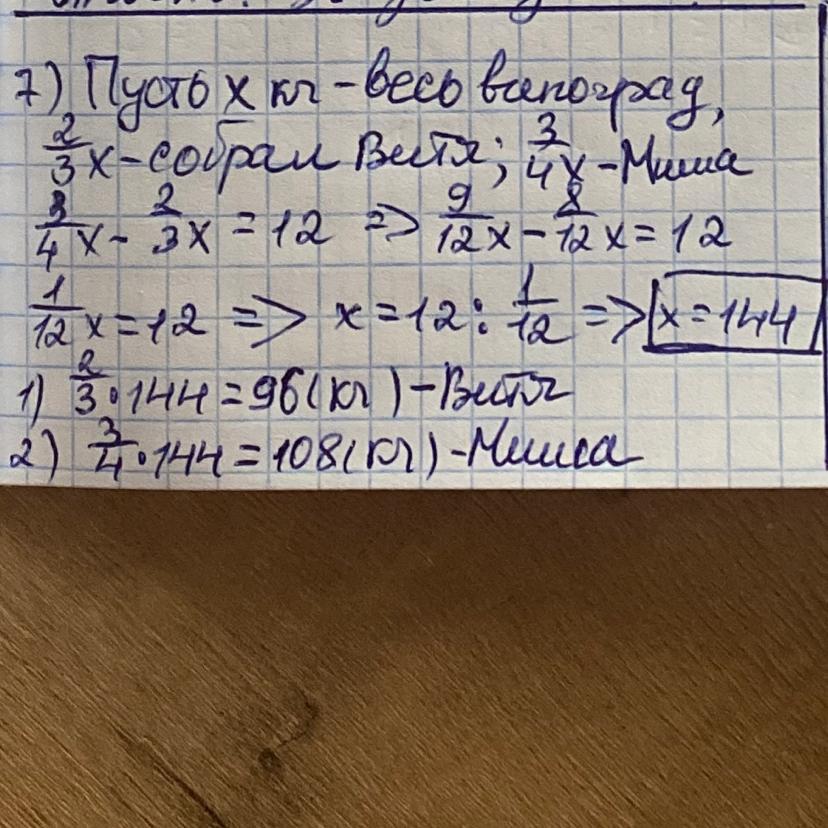 7) Пусть x кг - весь виноград,
2/3 x - собрал Витя; 3/4 x - Миша
3/4 x - 2/3 x = 12 => 9/12 x - 8/12 x = 12
1/12 x = 12 => x = 12 : 1/12 => x = 144
1) 2/3 · 144 = 96 (кг) - Витя
2) 3/4 · 144 = 108 (кг) - Миша